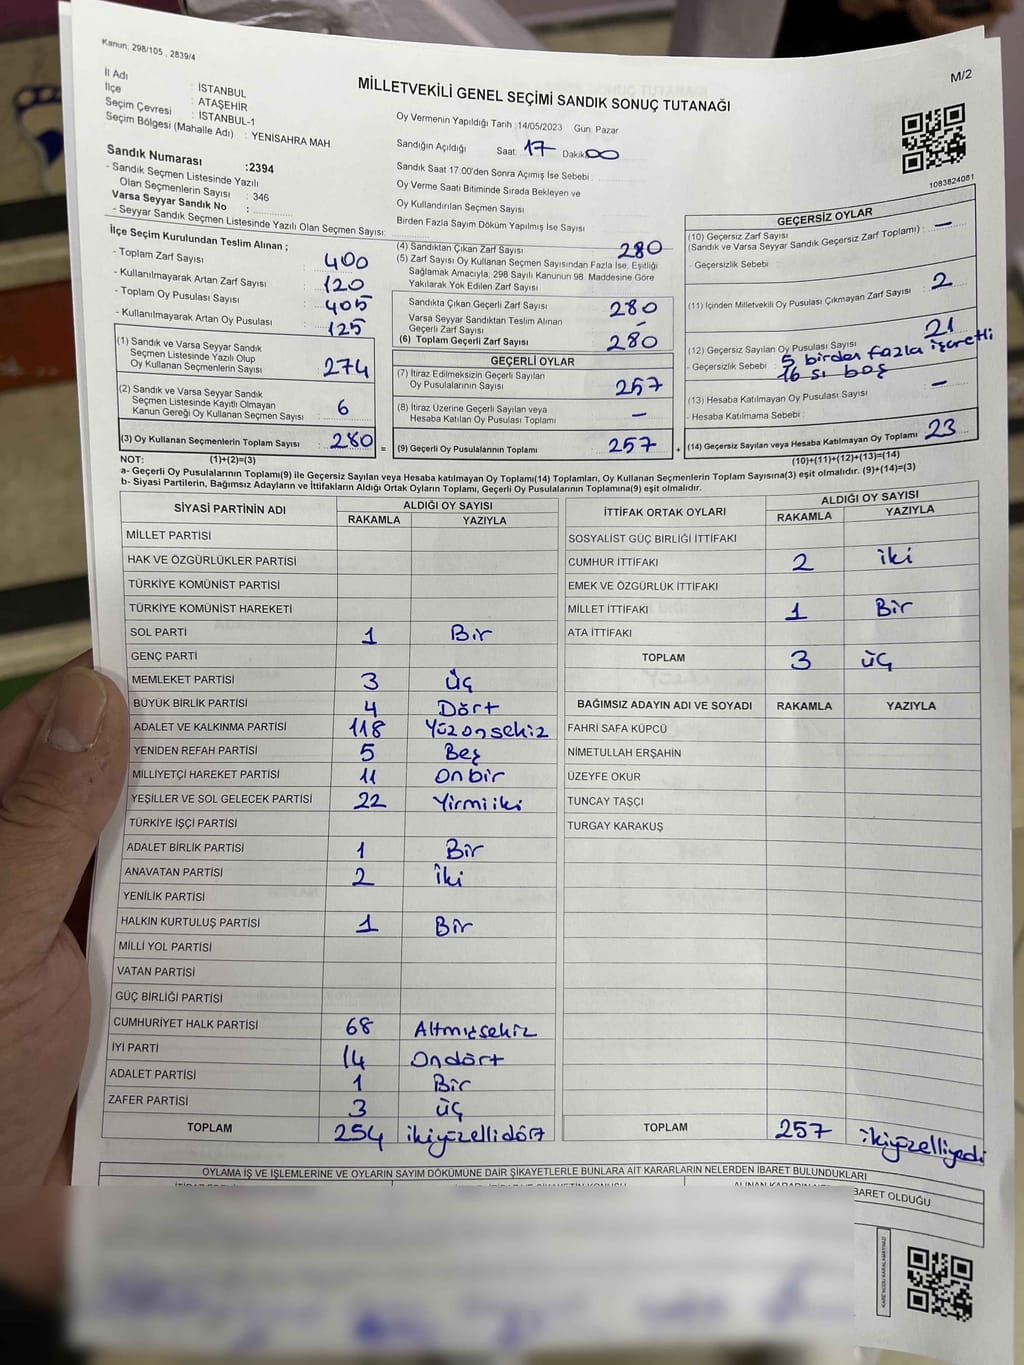 Kanun; 298/105 , 2839/4
M/2
MİLLETVEKİLİ GENEL SEÇİMİ SANDIK SONUÇ TUTANAĞI
İl Adı : İSTANBUL
İlçe : ATAŞEHİR
Seçim Çevresi : İSTANBUL-1
Seçim Bölgesi (Mahalle Adı) : YENİSAHRA MAH.
Sandık Numarası :2394
- Sandık Seçmen Listesinde Yazılı
Olan Seçmenlerin Sayısı : 346
Varsa Seyyar Sandık No :
- Seyyar Sandık Seçmen Listesinde Yazılı Olan Seçmen Sayısı:
Oy Vermenin Yapıldığı Tarih :14/05/2023 Gün: Pazar
Sandığın Açıldığı Saat: 17 Dakika: 00
Sandık Saat 17:00'den Sonra Açımış İse Sebebi :
Oy Verme Saati Bitiminde Sırada Bekleyen ve
Oy Kullandırılan Seçmen Sayısı
Birden Fazla Sayım Döküm Yapılmış İse Sayısı
1083824081
İlçe Seçim Kurulundan Teslim Alınan ;
- Toplam Zarf Sayısı : 400
- Kullanılmayarak Artan Zarf Sayısı : 120
- Toplam Oy Pusulası Sayısı : 405
- Kullanılmayarak Artan Oy Pusulası : 125
(1) Sandık ve Varsa Seyyar Sandık
Seçmen Listesinde Yazılı Olup
Oy Kullanan Seçmenlerin Sayısı : 274
(2) Sandık ve Varsa Seyyar Sandık
Seçmen Listesinde Kayıtlı Olmayan
Kanun Gereği Oy Kullanan Seçmen Sayısı : 6
(3) Oy Kullanan Seçmenlerin Toplam Sayısı : 280 =
(4) Sandıktan Çıkan Zarf Sayısı 280
(5) Zarf Sayısı Oy Kullanan Seçmen Sayısından Fazla İse, Eşitliği
Sağlamak Amacıyla; 298 Sayılı Kanunun 98. Maddesine Göre
Yakılarak Yok Edilen Zarf Sayısı
Sandıkta Çıkan Geçerli Zarf Sayısı 280
Varsa Seyyar Sandıktan Teslim Alınan
Geçerli Zarf Sayısı -
(6) Toplam Geçerli Zarf Sayısı 280
GEÇERLİ OYLAR
(7) İtiraz Edilmeksizin Geçerli Sayılan
Oy Pusulalarının Sayısı 257
(8) İtiraz Üzerine Geçerli Sayılan veya
Hesaba Katılan Oy Pusulası Toplamı -
(9) Geçerli Oy Pusulalarının Toplamı 257 +
GEÇERSİZ OYLAR
(10) Geçersiz Zarf Sayısı
(Sandık ve Varsa Seyyar Sandık Geçersiz Zarf Toplamı) : -
- Geçersizlik Sebebi :
(11) İçinden Milletvekili Oy Pusulası Çıkmayan Zarf Sayısı : 2
(12) Geçersiz Sayılan Oy Pusulası Sayısı : 21
- Geçersizlik Sebebi : 5 birden fazla işaretli
16 sı boş
(13) Hesaba Katılmayan Oy Pusulası Sayısı : -
- Hesaba Katılmama Sebebi :
(14) Geçersiz Sayılan veya Hesaba Katılmayan Oy Toplamı : 23
NOT: (1)+(2)=(3)
(10)+(11)+(12)+(13)=(14)
a- Geçerli Oy Pusulalarının Toplamı(9) ile Geçersiz Sayılan veya Hesaba katılmayan Oy Toplamı(14) Toplamları, Oy Kullanan Seçmenlerin Toplam Sayısına(3) eşit olmalıdır. (9)+(14)=(3)
b- Siyasi Partilerin, Bağımsız Adayların ve İttifakların Aldığı Ortak Oyların Toplamı, Geçerli Oy Pusulalarının Toplamına(9) eşit olmalıdır.
SİYASİ PARTİNİN ADI ALDIĞI OY SAYISI
RAKAMLA YAZIYLA
MİLLET PARTİSİ
HAK VE ÖZGÜRLÜKLER PARTİSİ
TÜRKİYE KOMÜNİST PARTİSİ
TÜRKİYE KOMÜNİST HAREKETİ
SOL PARTİ 1 Bir
GENÇ PARTİ
MEMLEKET PARTİSİ 3 üç
BÜYÜK BİRLİK PARTİSİ 4 Dört
ADALET VE KALKINMA PARTİSİ 118 Yüzonsekiz
YENİDEN REFAH PARTİSİ 5 Beş
MİLLİYETÇİ HAREKET PARTİSİ 11 Onbir
YEŞİLLER VE SOL GELECEK PARTİSİ 22 Yirmiiki
TÜRKİYE İŞÇİ PARTİSİ
ADALET BİRLİK PARTİSİ 1 Bir
ANAVATAN PARTİSİ 2 İki
YENİLİK PARTİSİ
HALKIN KURTULUŞ PARTİSİ 1 Bir
MİLLİ YOL PARTİSİ
VATAN PARTİSİ
GÜÇ BİRLİĞİ PARTİSİ
CUMHURİYET HALK PARTİSİ 68 Altmışsekiz
İYİ PARTİ 14 Ondört
ADALET PARTİSİ 1 Bir
ZAFER PARTİSİ 3 üç
TOPLAM 254 ikiyüzellidört
İTTİFAK ORTAK OYLARI ALDIĞI OY SAYISI
RAKAMLA YAZIYLA
SOSYALİST GÜÇ BİRLİĞİ İTTİFAKI
CUMHUR İTTİFAKI 2 iki
EMEK VE ÖZGÜRLÜK İTTİFAKI
MİLLET İTTİFAKI 1 Bir
ATA İTTİFAKI
TOPLAM 3 üç
BAĞIMSIZ ADAYIN ADI VE SOYADI RAKAMLA YAZIYLA
FAHRİ SAFA KÜPCÜ
NİMETULLAH ERŞAHİN
ÜZEYFE OKUR
TUNCAY TAŞÇI
TURGAY KARAKUŞ
TOPLAM 257 ikiyüzelliyedi
OYLAMA İŞ VE İŞLEMLERİNE VE OYLARIN SAYIM DÖKÜMÜNE DAİR ŞİKAYETLERLE BUNLARA AİT KARARLARIN NELERDEN İBARET BULUNDUKLARI
BARET OLDUĞU